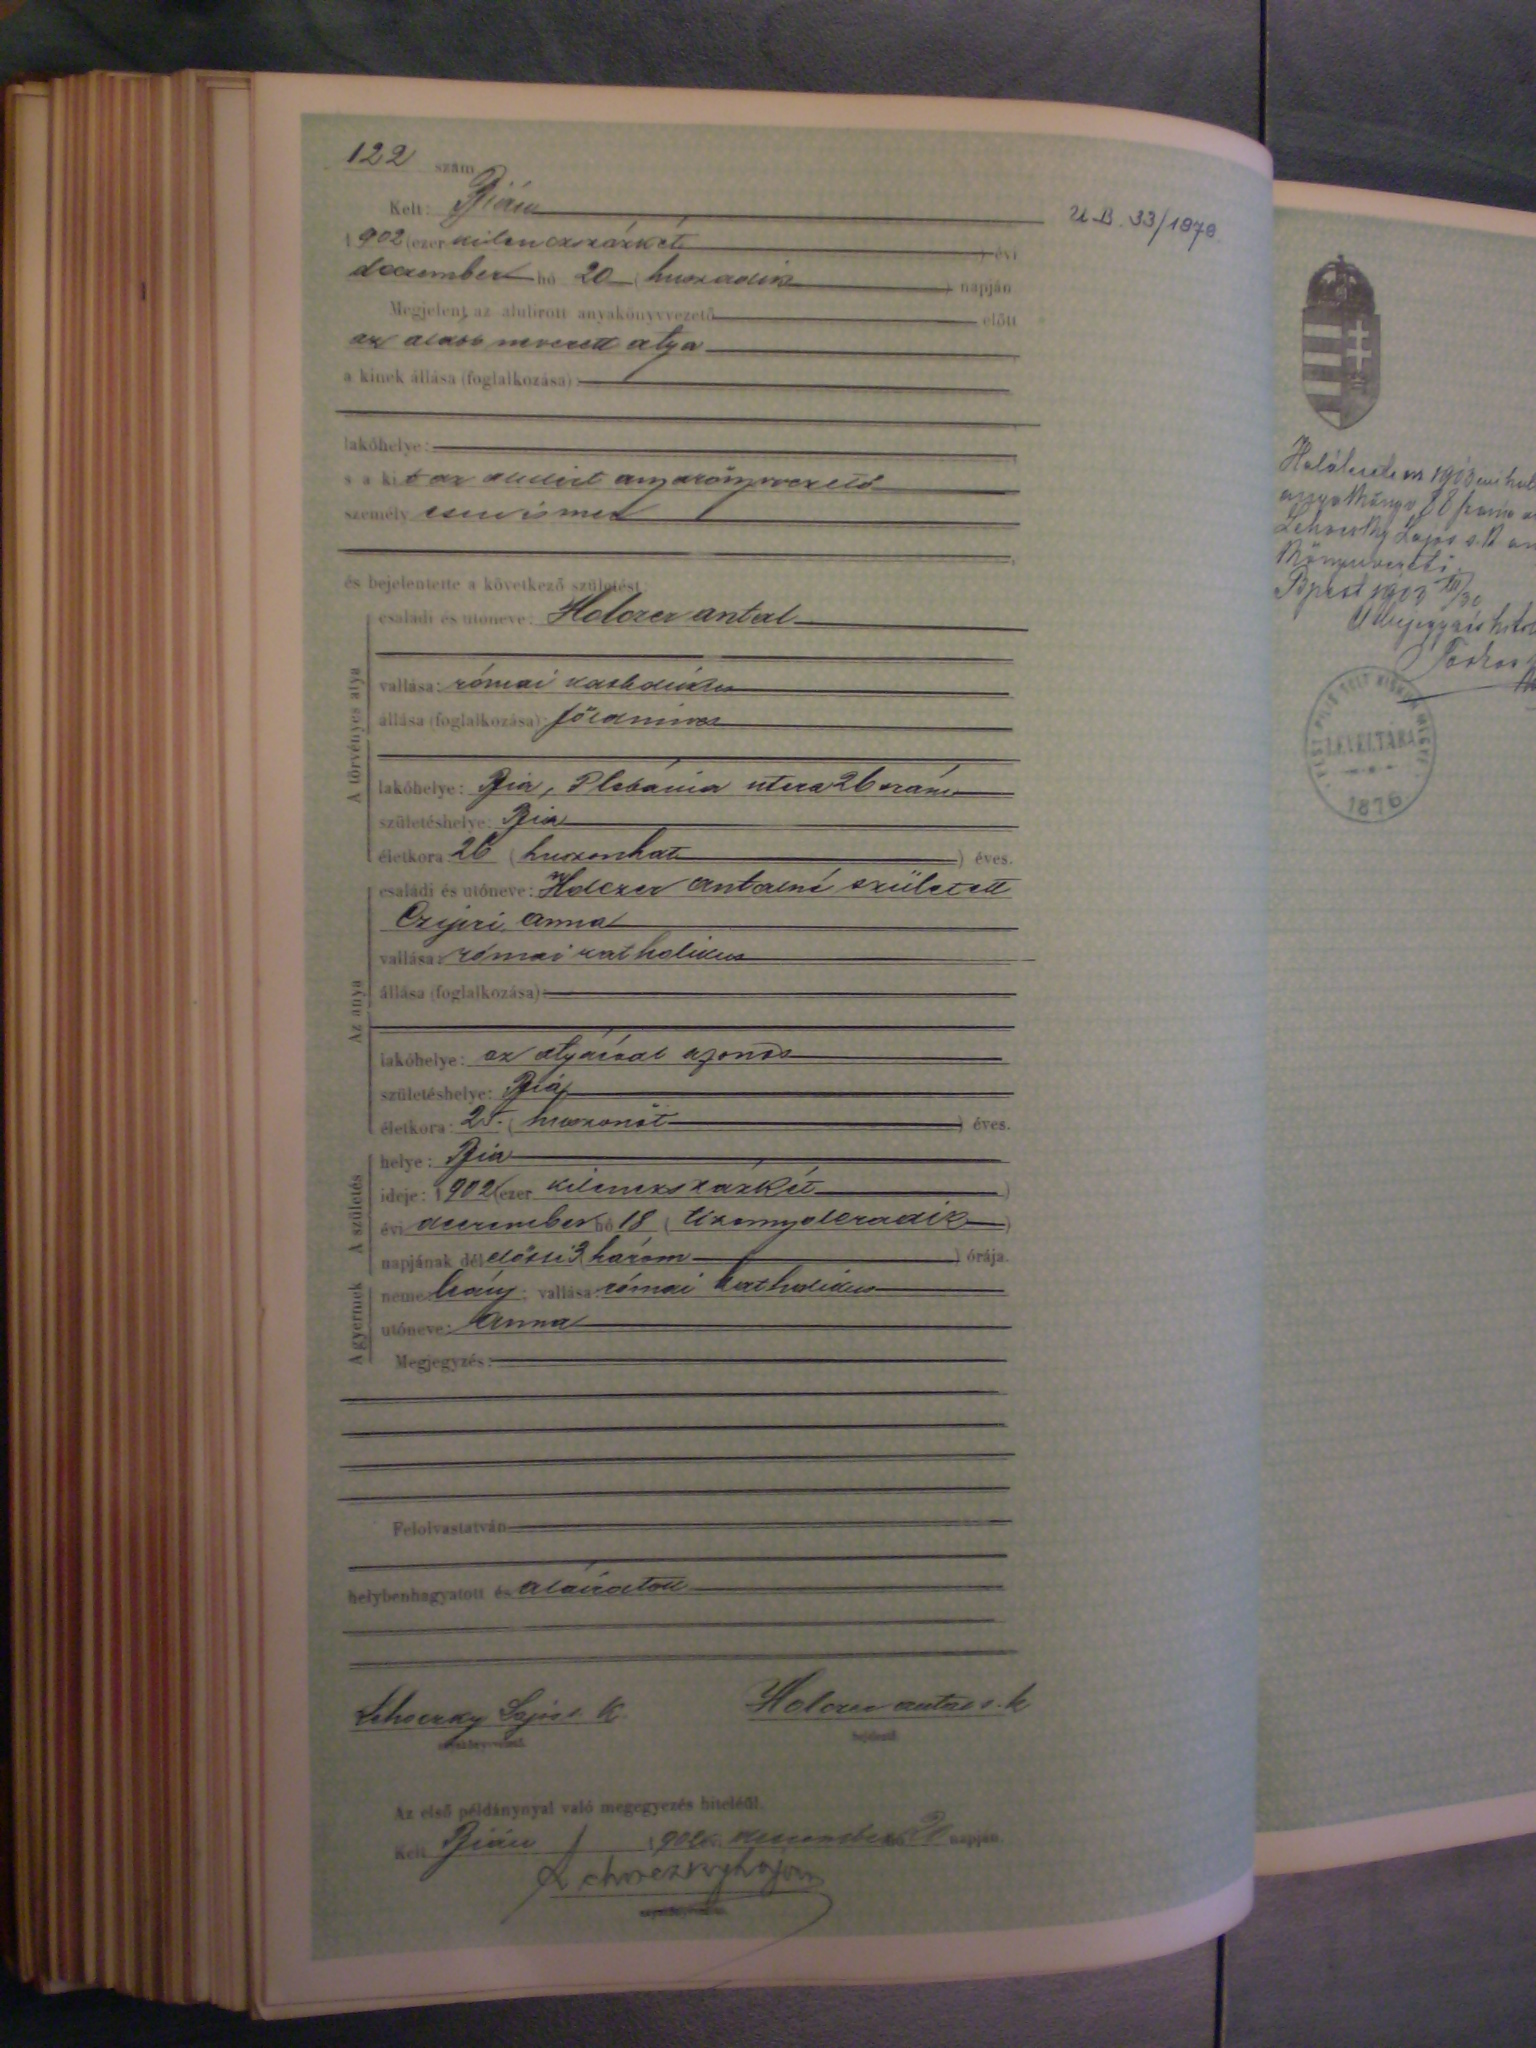 122 szám
Kelt: Bián
1902 (ezer kilenczszázkét ) évi
december hó 20 ( huszadik ) napján
Megjelent az alulirott anyakönyvvezető előtt
az alább nevezett atya
a kinek állása (foglalkozása):
lakóhelye:
s a kit az alulirt anyakönyvvezető
személyesen ismer
és bejelentette a következő születést:
A törvényes atya
családi és utóneve: Holczer Antal
vallása: római katholikus
állása (foglalkozása): földmives
lakóhelye: Bia, Plebánia utcza 26 szám
születéshelye: Bia
életkora: 26 ( huszonhat ) éves.
Az anya
családi és utóneve: Holczer Antalné született
Czipri Anna
vallása: római katholikus
állása (foglalkozása):
lakóhelye: az atyáéval azonos
születéshelye: Bia
életkora: 25. ( huszonöt ) éves.
A születés
helye: Bia
ideje: 1902 (ezer kilenczszázkét )
évi december hó 18 ( tizennyolczadik )
napjának délelőtti 3 ( három ) órája.
A gyermek
neme: leány; vallása: római katholikus
utóneve: Anna
Megjegyzés:
Felolvastatván
helybenhagyatott és aláiratott
Lehoczky Lajos s. k. Holczer Antal s. k.
anyakönyvvezető. bejelentő.
Az első példánynyal való megegyezés hiteléül.
Kelt Bián 1902. december napján.
Lehoczky Lajos
anyakönyvvezető.
U.B. 33/1978.
Halálesete az 1903 évi
anyakönyv 88
Lehoczky Lajos s. k.
könyvvezető.
Bpest 1903 XII/30
LEVÉLTÁRA
1876